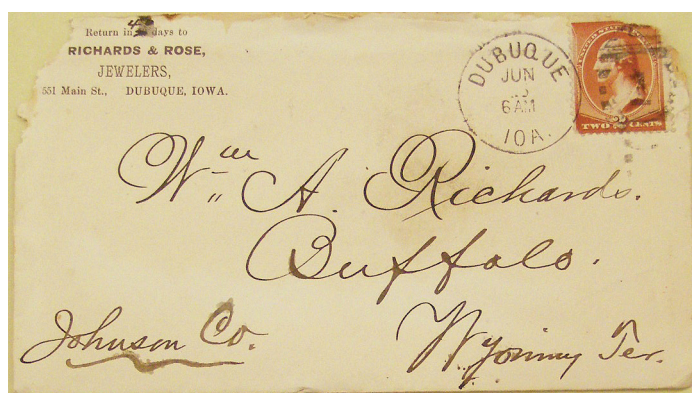 Return in 4 days to
RICHARDS & ROSE,
JEWELERS,
551 Main St., DUBUQUE, IOWA.
DUBUQUE
JUN
6 AM
IOA.
TWO 2 CENTS
Wm A. Richards.
Buffalo.
Johnson Co.
Wyoming Ter.